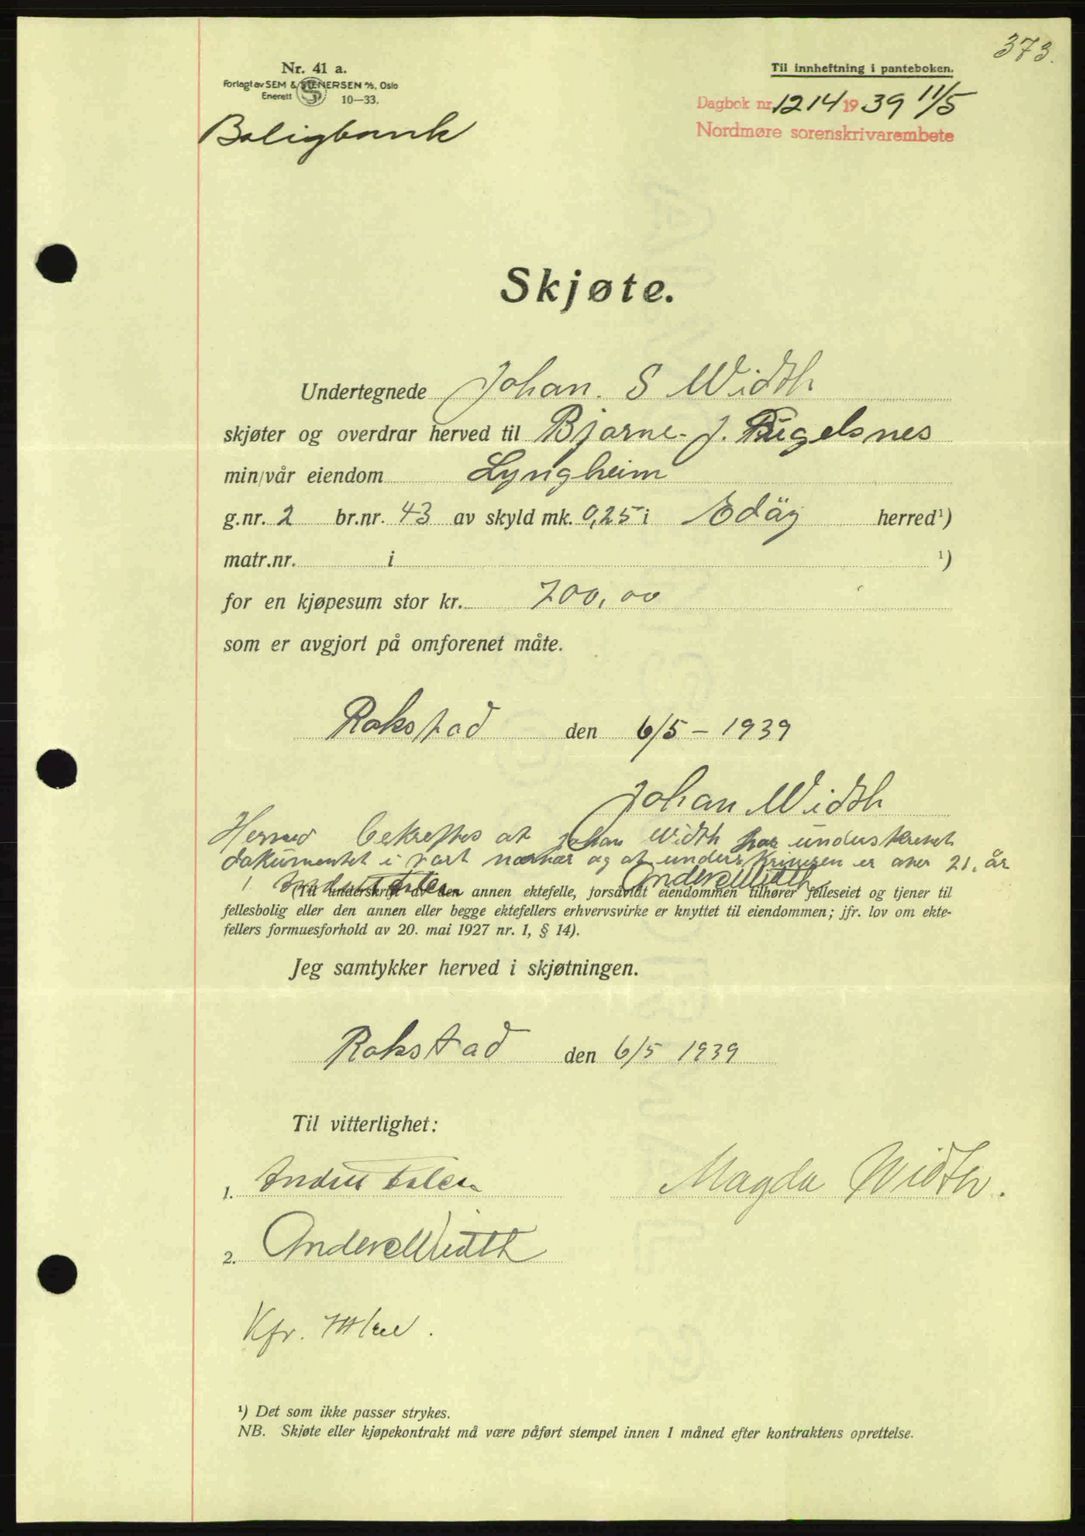 373.
Nr. 41 a.
Forlagt av SEM & STENERSEN A/S, Oslo
Enerett 10—33.
Til innheftning i panteboken.
Dagbok nr. 1214 1939 11/5
Nordmøre sorenskrivarembete
Boligbank
Skjøte.
Undertegnede Johan. S Width
skjøter og overdrar herved til Bjarne. J. Fugelsnes
min/vår eiendom Lyngheim
g.nr. 2 br.nr. 43 av skyld mk. 0,25 i Edöy herred¹)
matr.nr. i ¹)
for en kjøpesum stor kr. 700,00
som er avgjort på omforenet måte.
Rokstad den 6/5 - 1939
Johan Width
Herved bekreftes at Johan Width har underskrevet
dokumentet i vort nærvær og at underskriveren er over 21. år
1. Anders Width
(Til underskrift av den annen ektefelle, forsåvidt eiendommen tilhører felleseiet og tjener til
fellesbolig eller den annen eller begge ektefellers erhvervsvirke er knyttet til eiendommen; jfr. lov om ekte-
fellers formuesforhold av 20. mai 1927 nr. 1, § 14).
Jeg samtykker herved i skjøtningen.
Rokstad den 6/5 1939
Til vitterlighet:
1.
Magda Width.
2. Anders Width
Kfr.
¹) Det som ikke passer strykes.
NB. Skjøte eller kjøpekontrakt må være påført stempel innen 1 måned efter kontraktens oprettelse.